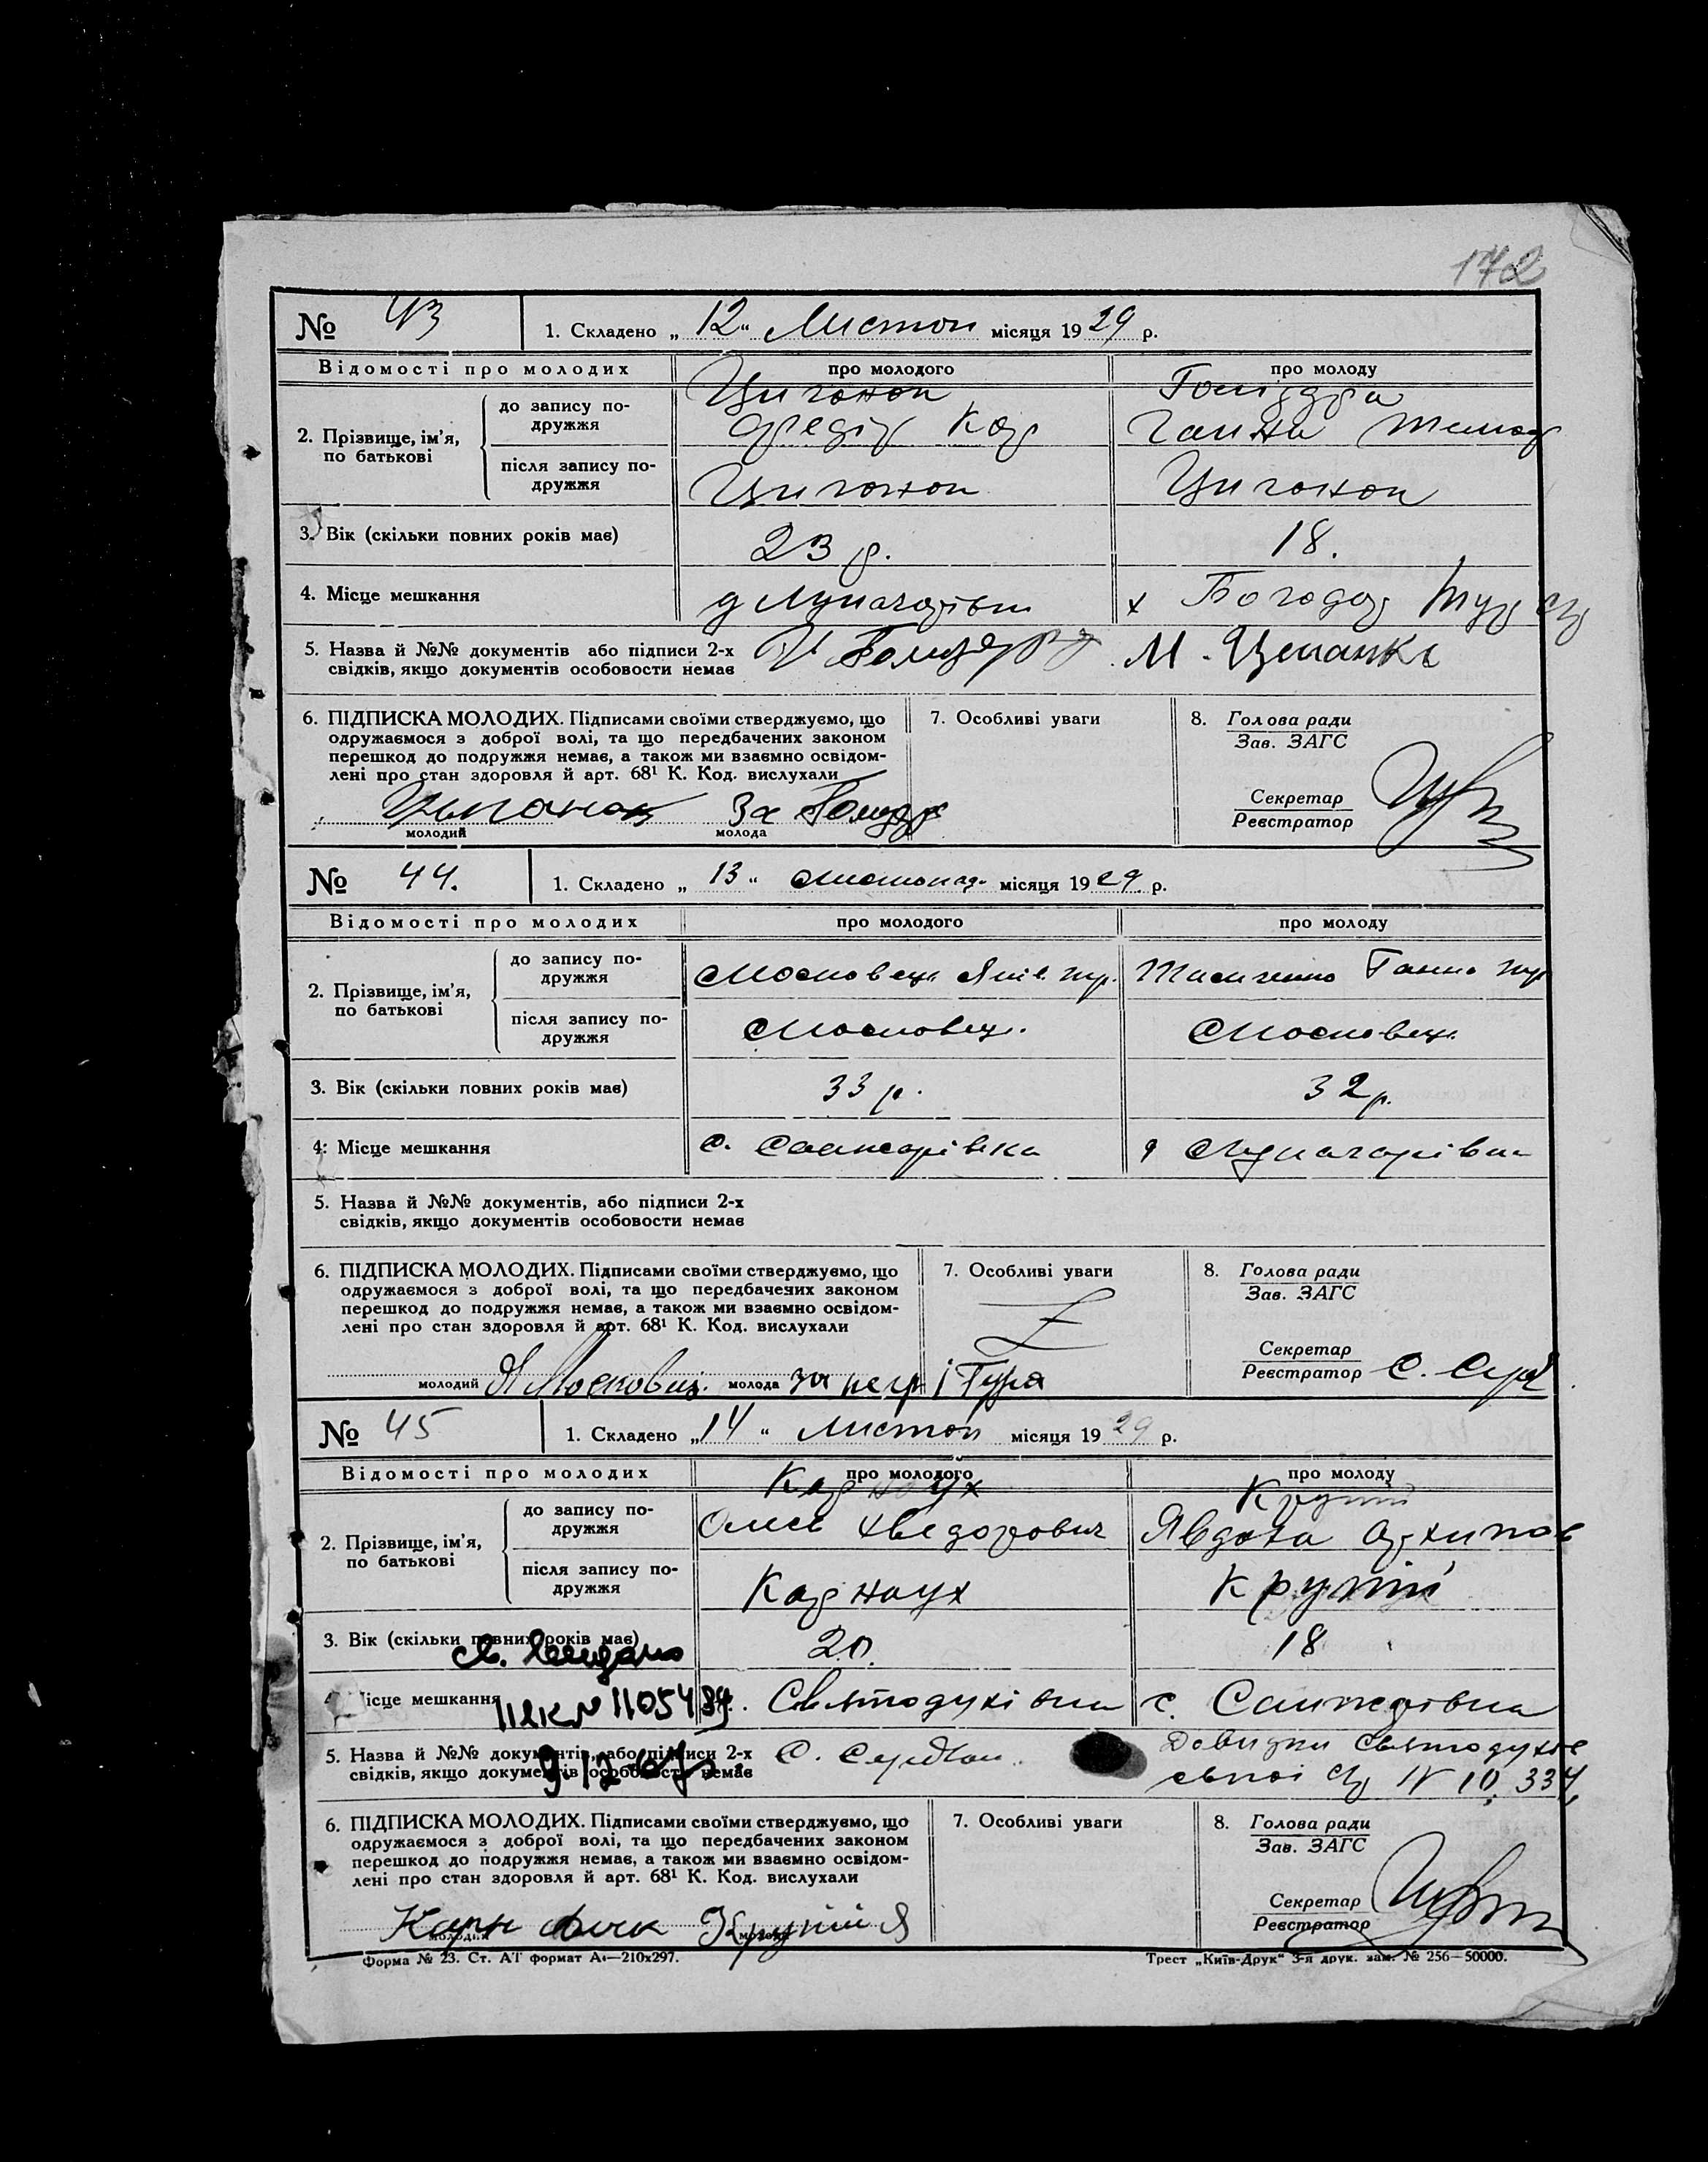 172
№ 43 1. Складено „ 12 “ Листоп місяця 19 29 р.
Відомості про молодих про молодого про молоду
2. Прізвище, ім’я, по батькові
до запису подружжя
Циганок
Федір Кар
Ганна
після запису подружжя
Циганок Циганок
3. Вік (скільки повних років має) 23 р. 18.
4. Місце мешкання
5. Назва й №№ документів або підписи 2-х
свідків, якщо документів особовости немає
6. ПІДПИСКА МОЛОДИХ. Підписами своїми стверджуємо, що
одружаємося з доброї волі, та що передбачених законом
перешкод до подружжя немає, а також ми взаємно освідом-
лені про стан здоровля й арт. 68¹ К. Код. вислухали
За
молодий молода
7. Особливі уваги
8. Голова ради
Зав. ЗАГС
Секретар
Реєстратор
№ 44. 1. Складено „ 13 “ Листопад. місяця 19 29 р.
Відомості про молодих про молодого про молоду
2. Прізвище, ім’я, по батькові
до запису подружжя
Московець Яків Ганна
після запису подружжя
Московець. Московець
3. Вік (скільки повних років має) 33 р. 32 р.
4. Місце мешкання с. Санжарівка
5. Назва й №№ документів, або підписи 2-х
свідків, якщо документів особовости немає
6. ПІДПИСКА МОЛОДИХ. Підписами своїми стверджуємо, що
одружаємося з доброї волі, та що передбачених законом
перешкод до подружжя немає, а також ми взаємно освідом-
лені про стан здоровля й арт. 68¹ К. Код. вислухали
молодий Я Московец. молода за негр і Гура
7. Особливі уваги
8. Голова ради
Зав. ЗАГС
Секретар
Реєстратор
№ 45 1. Складено „ 14 “ Листоп місяця 19 29 р.
Відомості про молодих про молодого про молоду
2. Прізвище, ім’я, по батькові
до запису подружжя
Карнаух Крупій
Олесь Хведорович Явдоха Архипов
після запису подружжя
Карнаух Крупій
3. Вік (скільки повних років має) 20. 18
4. Місце мешкання Святодухівка с. Санжарівка
5. Назва й №№ документів, або підписи 2-х
свідків, якщо документів особовости немає
Довідки Святодухів
ської С/р № 10, 334,
6. ПІДПИСКА МОЛОДИХ. Підписами своїми стверджуємо, що
одружаємося з доброї волі, та що передбачених законом
перешкод до подружжя немає, а також ми взаємно освідом-
лені про стан здоровля й арт. 68¹ К. Код. вислухали
Крупій Я
молодий молода
7. Особливі уваги
8. Голова ради
Зав. ЗАГС
Секретар
Реєстратор
Форма № 23. Ст. АТ формат А₄—210x297.
Трест „Київ-Друк“ 3-я друк. зам. № 256—50000.